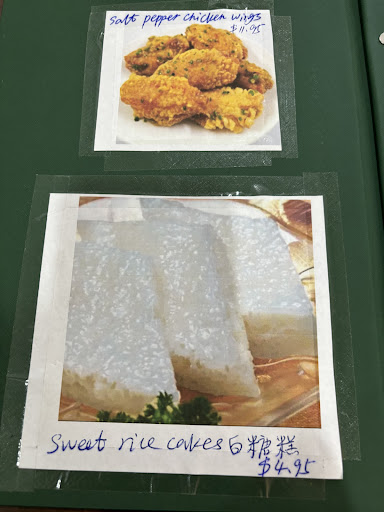 salt pepper chicken wings
$11.95
Sweet rice cakes白糖糕
$4.95